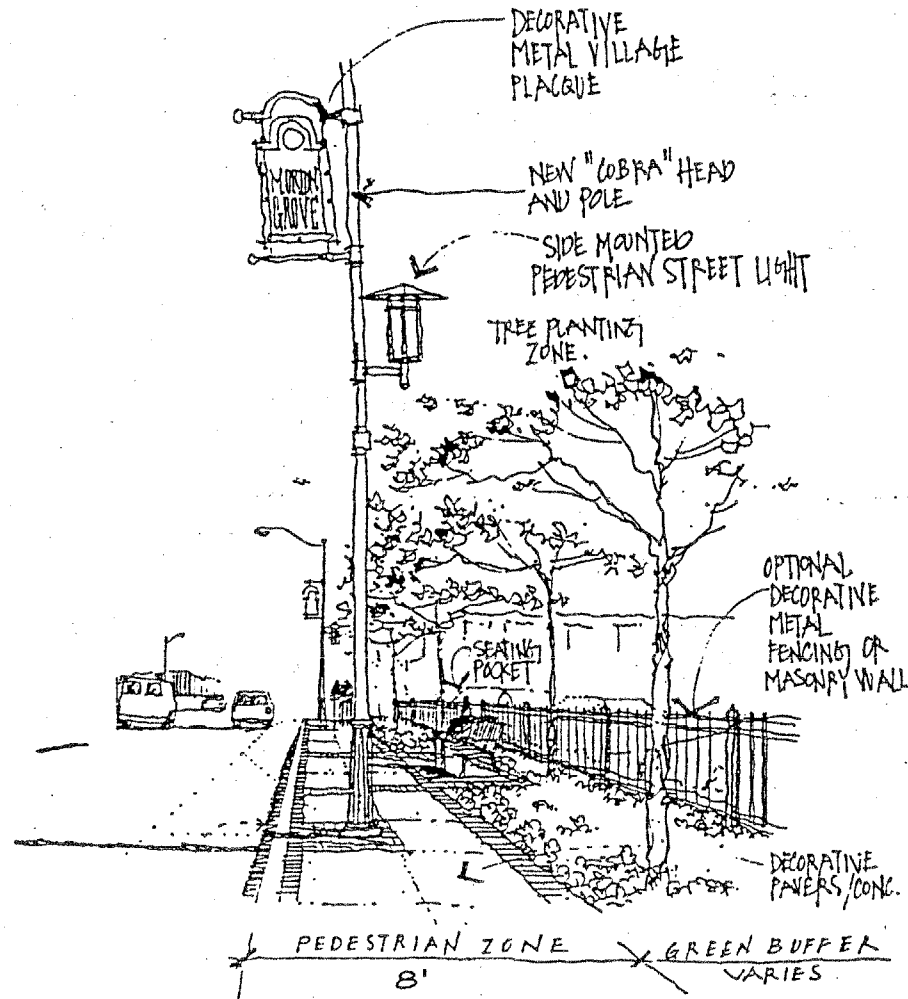 DECORATIVE
METAL VILLAGE
PLACQUE
NEW "COBRA" HEAD
AND POLE
SIDE MOUNTED
PEDESTRIAN STREET LIGHT
TREE PLANTING
ZONE.
MORTON
GROVE
OPTIONAL
DECORATIVE
METAL
FENCING OR
MASONRY WALL
SEATING
POCKET
DECORATIVE
PAVERS/CONC.
PEDESTRIAN ZONE
8'
GREEN BUFFER
VARIES